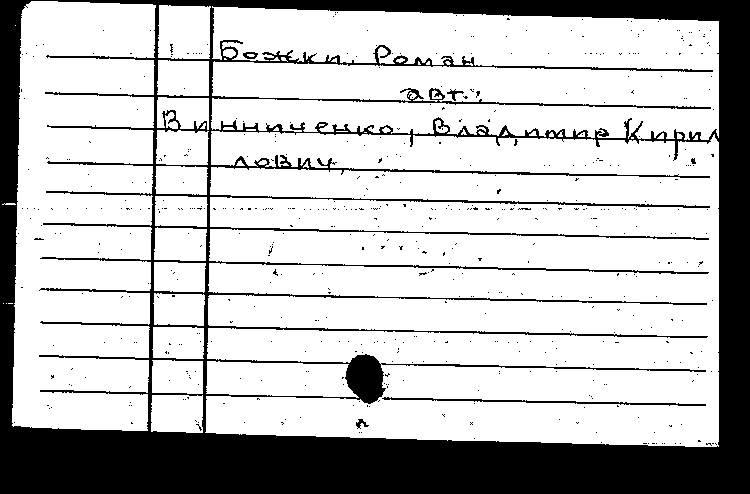 Божки. Роман
авт.:
Винниченко, Владимир Кирил
лович.